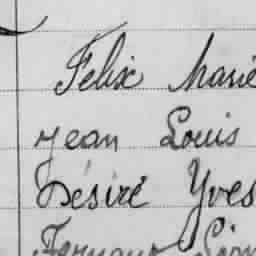 Felix Marie
Jean Louis
Désiré Yves
Fernand Léon